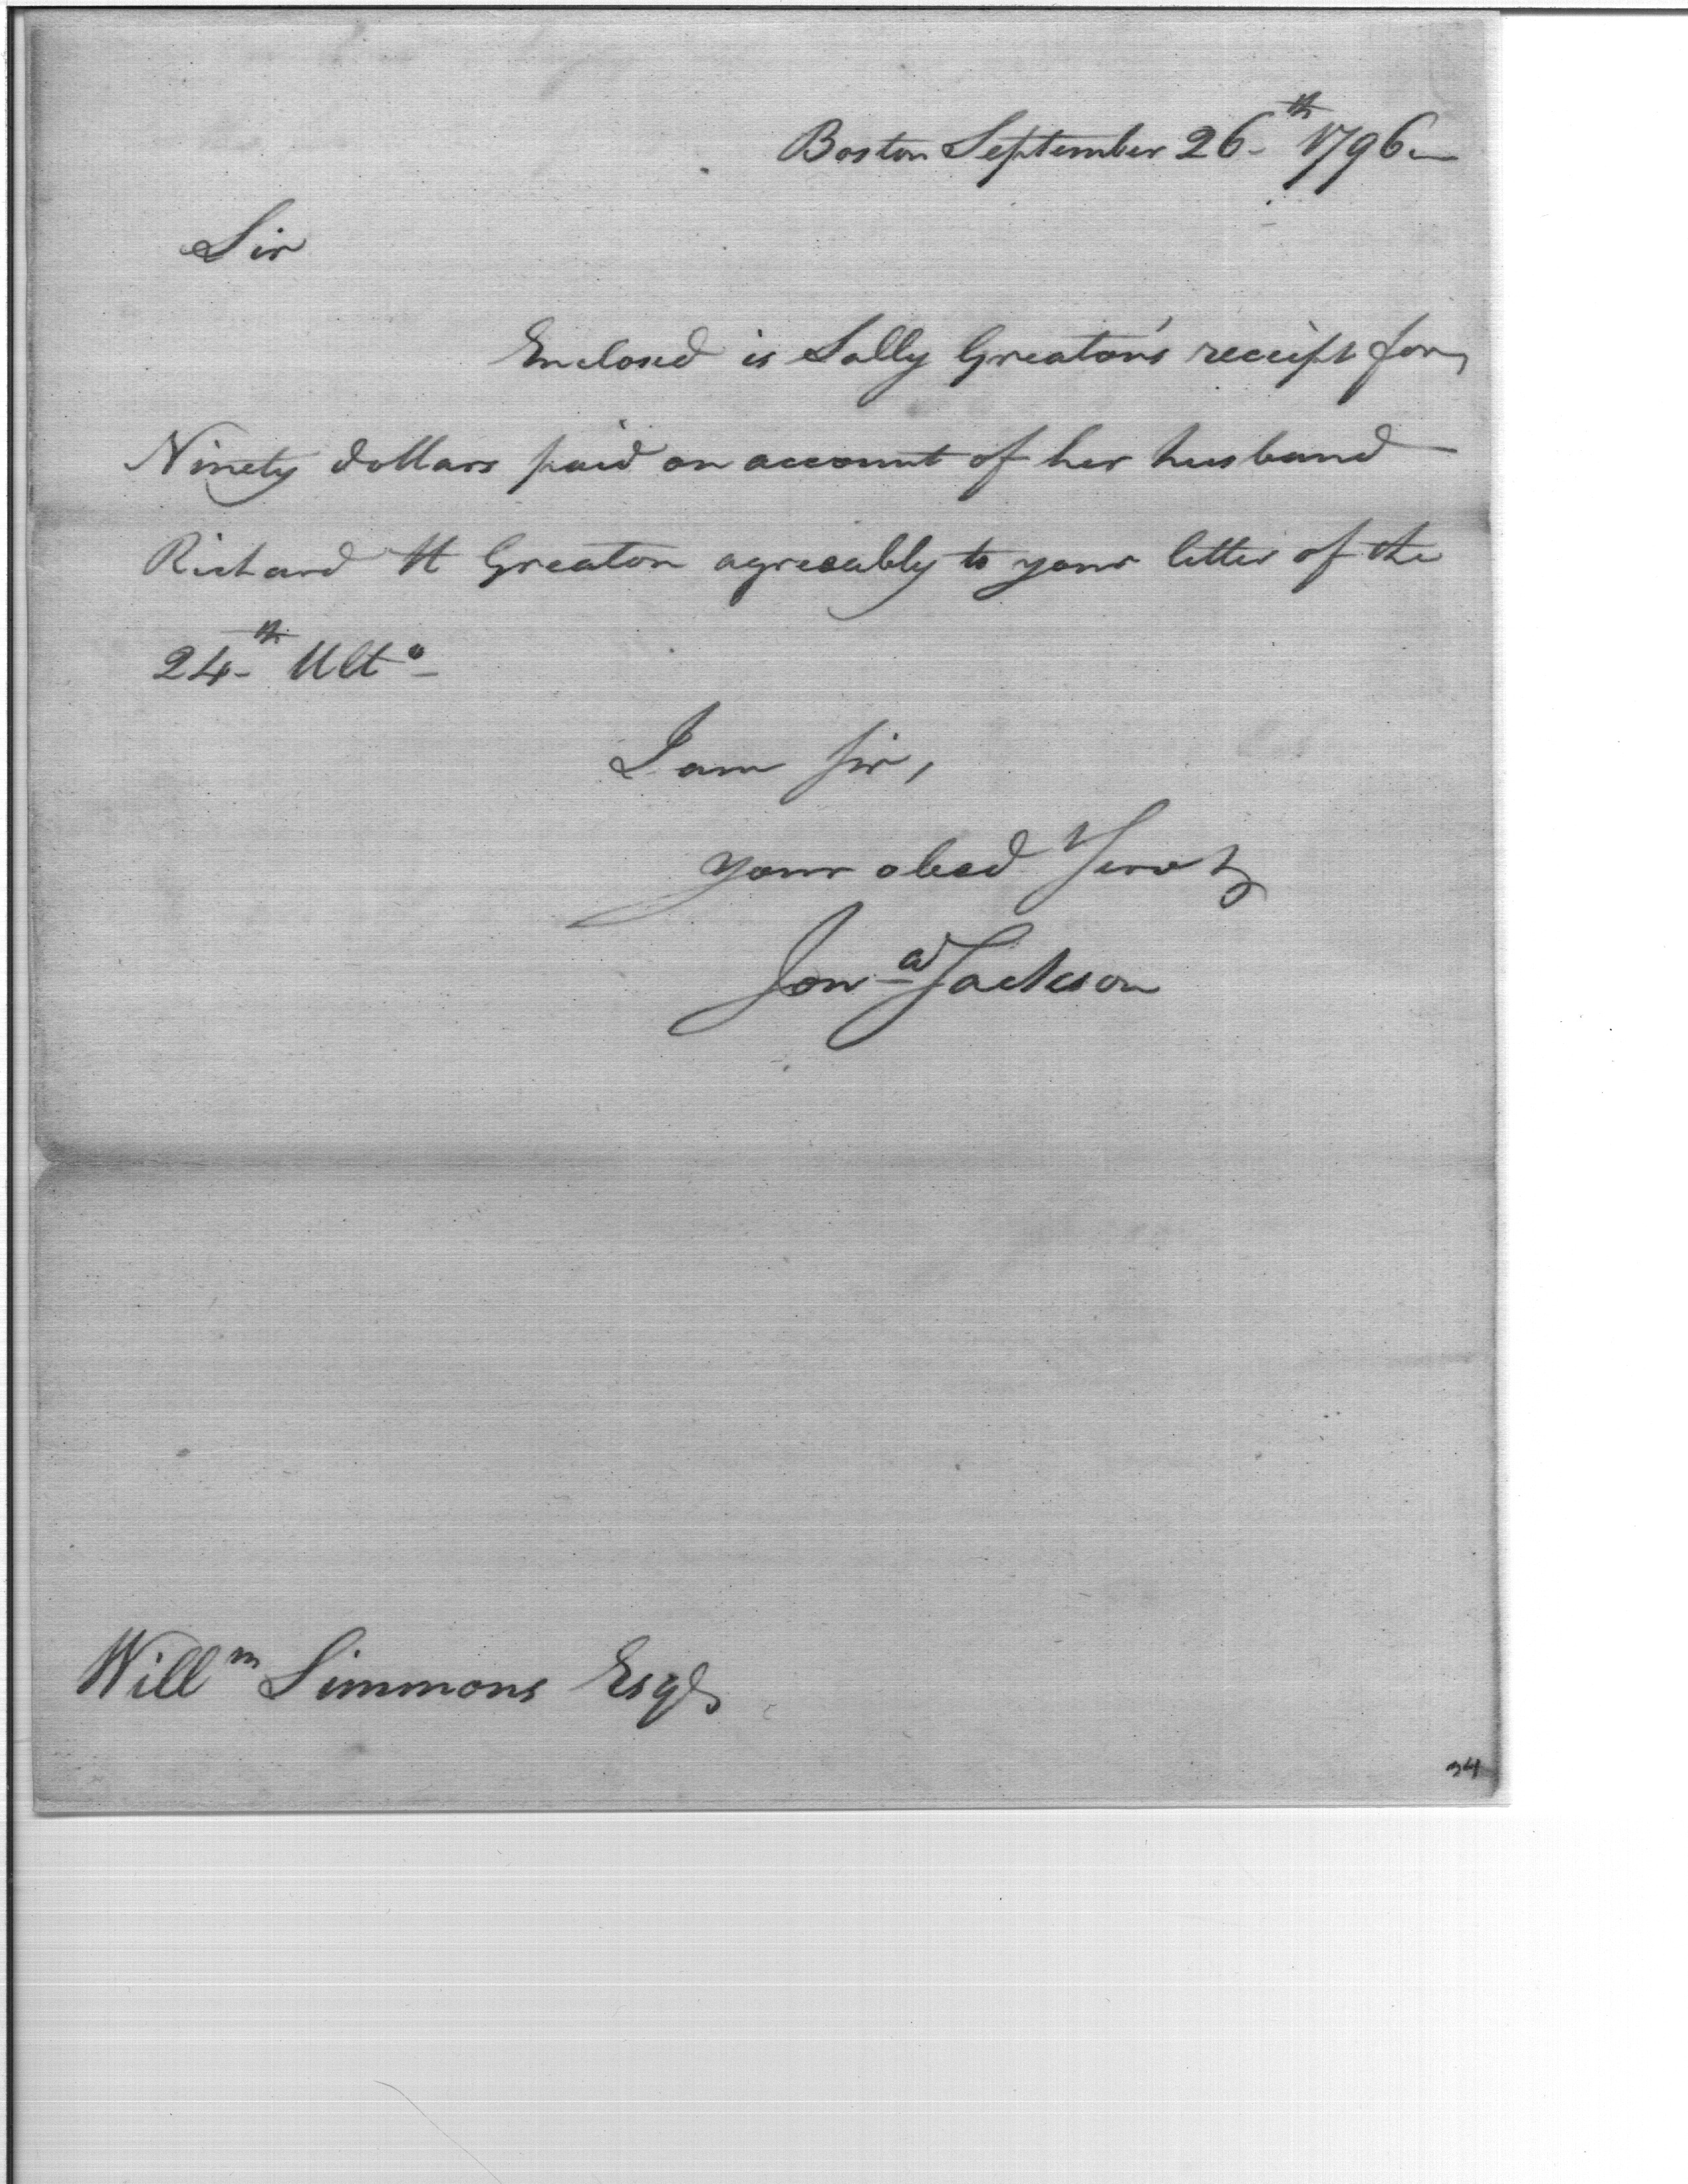 Boston September 26th 1796
Sir
Enclosed is Sally Greaton's receipt for
Ninety dollars paid on account of her husband
Richard H Greaton agreeably to your letter of the
24th Ulto
I am Sir,
your obed Servt
Jona Jackson
Willm Simmons Esqr
34